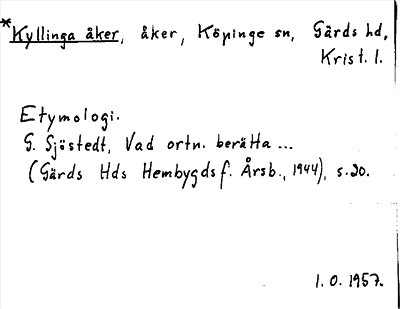 *Kyllinga åker, åker, Köpinge sn, Gärds hd,
Krist. l.
Etymologi.
G. Sjöstedt, Vad ortn. berätta ...
(Gärds Hds Hembygdsf. Årsb., 1944), s. 20.
1. O. 1957.